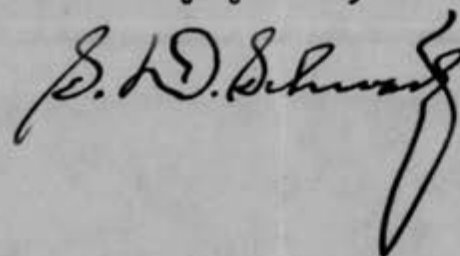 S. D. Schwartz